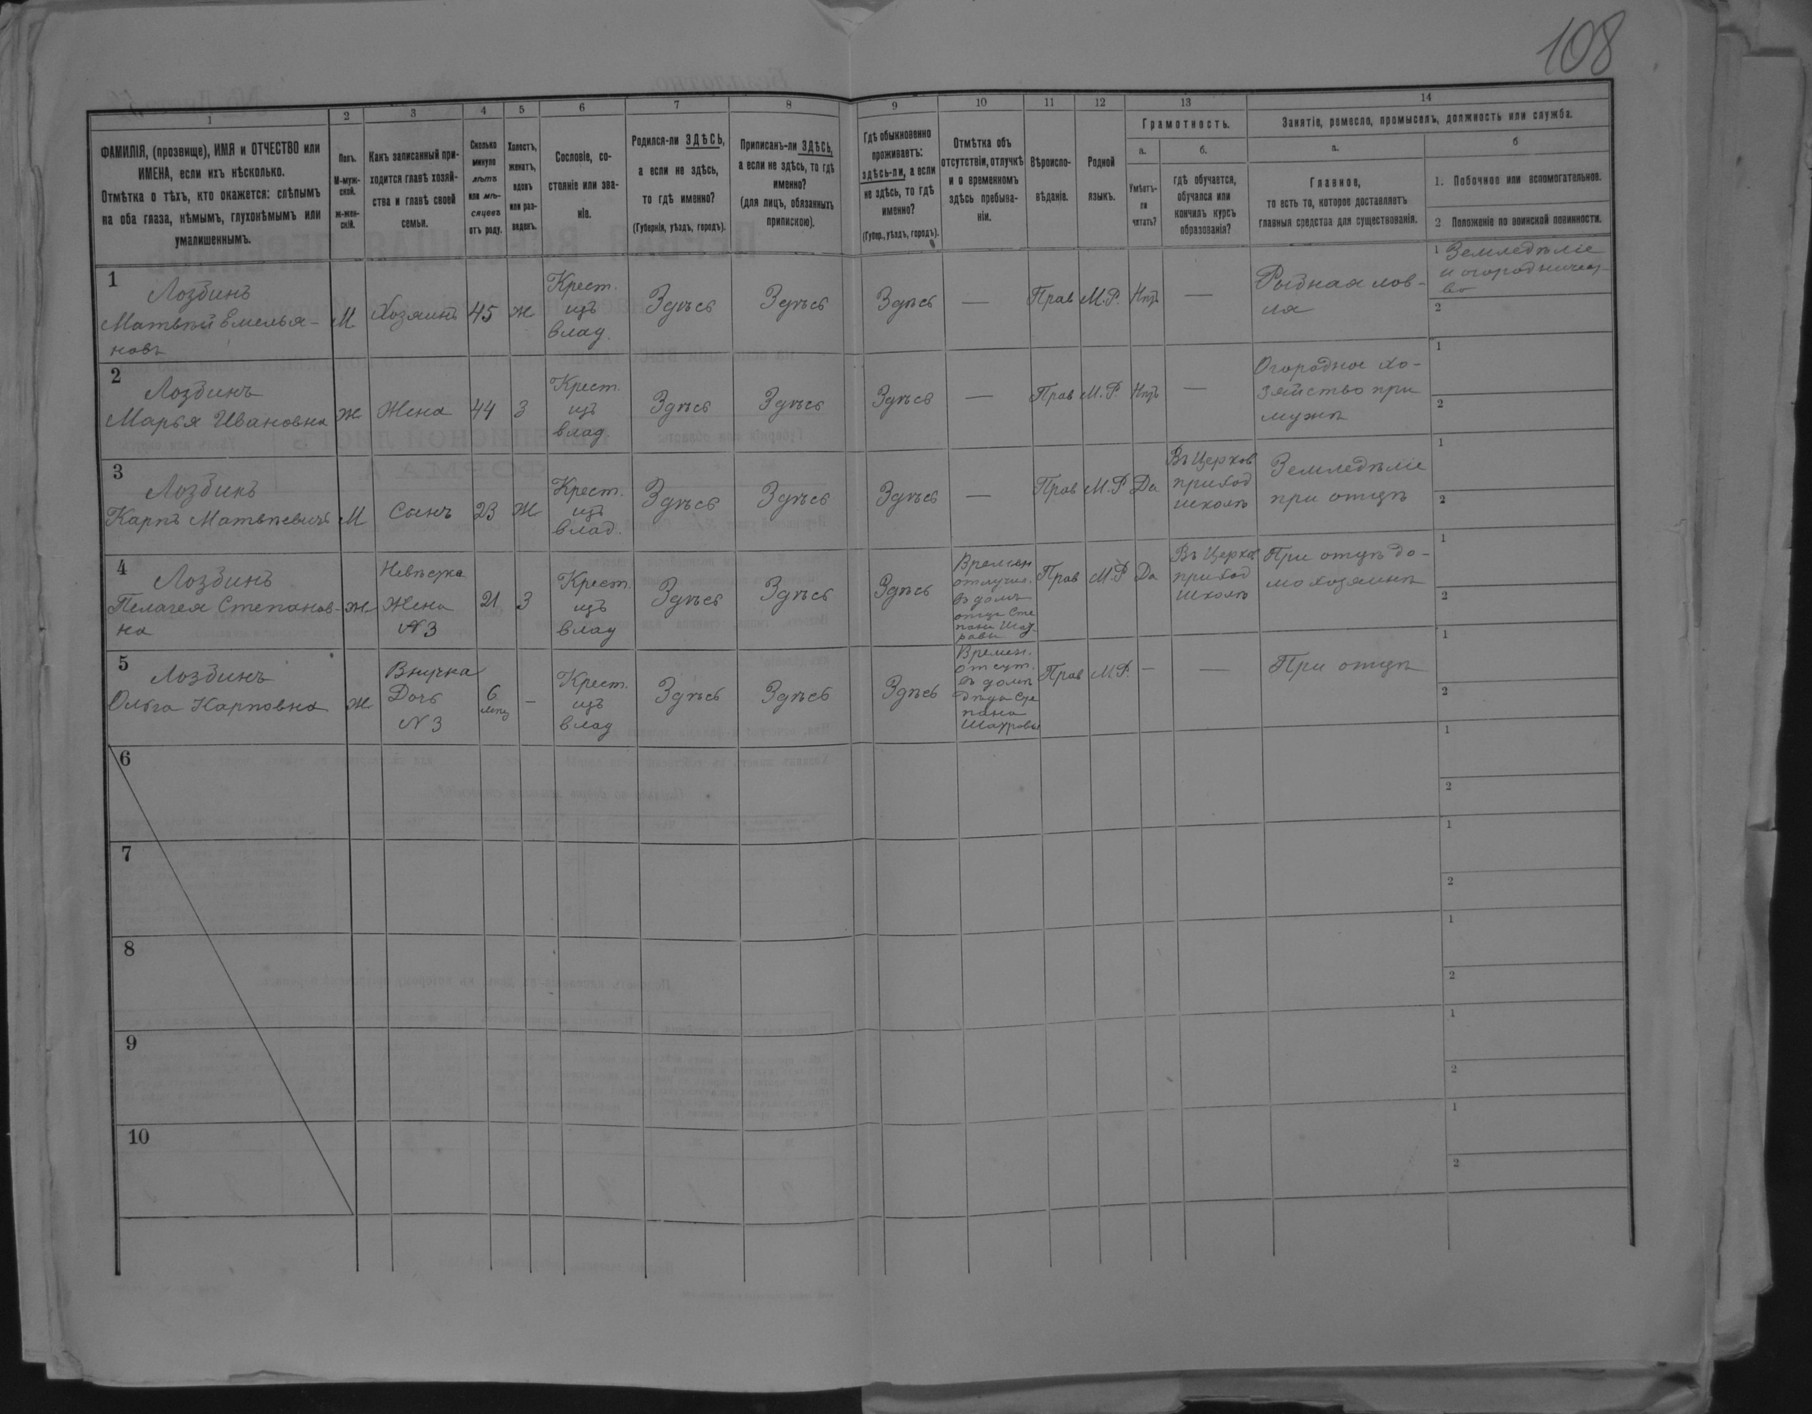 108
1
2
3
4
5
6
7
8
9
10
11
12
13
14
ФАМИЛІЯ, (прозвище), ИМЯ и ОТЧЕСТВО или
ИМЕНА, если ихъ нѣсколько.
Отмѣтка о тѣхъ, кто окажется: слѣпымъ
на оба глаза, нѣмымъ, глухонѣмымъ или
умалишеннымъ.
Полъ.
М-муж-
ской.
ж-жен-
скій.
Какъ записанный при-
ходится главѣ хозяй-
ства и главѣ своей
семьи.
Сколько
минуло
лѣтъ
или мѣ-
сяцевъ
отъ роду.
Холостъ,
женатъ,
вдовъ
или раз-
веденъ.
Сословіе, со-
стояніе или зва-
ніе.
Родился-ли ЗДѢСЬ,
а если не здѣсь,
то гдѣ именно?
(Губернія, уѣздъ, городъ).
Приписанъ-ли ЗДѢСЬ,
а если не здѣсь, то гдѣ
именно?
(для лицъ, обязанныхъ
припискою).
Гдѣ обыкновенно
проживаетъ:
здѣсь-ли, а если
не здѣсь, то гдѣ
именно?
(Губер., уѣздъ, городъ).
Отмѣтка объ
отсутствіи, отлучкѣ
и о временномъ
здѣсь пребыва-
ніи.
Вѣроиспо-
вѣданіе.
Родной
языкъ.
Грамотность.
а.
Умѣетъ-
ли
читать?
б.
гдѣ обучается,
обучался или
кончилъ курсъ
образованія?
Занятіе, ремесло, промыселъ, должность или служба.
а.
Главное,
то есть то, которое доставляетъ
главныя средства для существованія.
б
1. Побочное или вспомогательное.
2 Положеніе по воинской повинности.
1
Лозбинъ
Матвѣй Емелья-
новъ
М
Хозяинъ
45
ж
Крест.
изъ
влад.
Здѣсь
Здѣсь
Здѣсь
—
Прав
М.Р.
Нѣтъ
—
Рыбная лов-
ля
1 Земледѣліе
и огородничес-
во
2
2
Лозбинъ
Марья Ивановна
ж
Жена
44
З
Крест.
изъ
влад
Здѣсь
Здѣсь
Здѣсь
—
Прав
М.Р
Нѣтъ
—
Огородное хо-
зяйство при
мужѣ
1
2
3
Лозбинъ
Карпъ Матвѣевичъ
М
Сынъ
23
Ж
Крест.
изъ
влад.
Здѣсь
Здѣсь
Здѣсь
—
Прав
М.Р
Да
Въ Церков
приход
школѣ
Земледѣліе
при отцѣ
1
2
4
Лозбинъ
Пелагея Степанов-
на
ж
Невѣстка
Жена
N 3
21
З
Крест.
изъ
влад
Здѣсь
Здѣсь
Здѣсь
Времен
отлучил.
въ домъ
отца Сте
пана
Прав
М.Р
Да
Въ Церков
приход
школѣ
При отцѣ до-
мохозяинѣ
1
2
5
Лозбинъ
Ольга Карповна
ж
Внучка
Дочь
N 3
6
мѣсяц
—
Крест.
изъ
влад
Здѣсь
Здѣсь
Здѣсь
Времен.
отсут.
въ домѣ
дѣда Сте
пана
Прав
М.Р.
—
—
При отцѣ
1
2
6
1
2
7
1
2
8
1
2
9
1
2
10
1
2